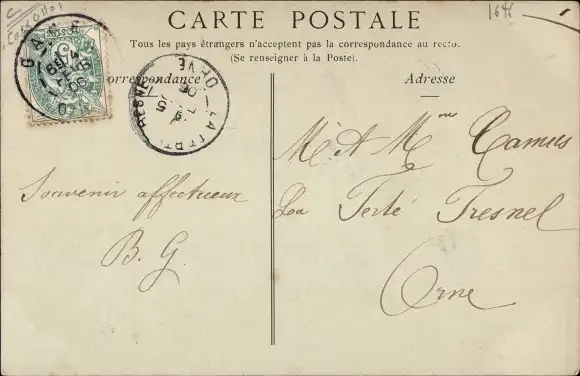 CARTE POSTALE
Tous les pays étrangers n'acceptent pas la correspondance au recto.
(Se renseigner à la Poste).
orrespondance
Adresse
Souvenir affectueux
B. G.
Mr & Mme Camus
La Ferté Fresnel
Orne
ORNE